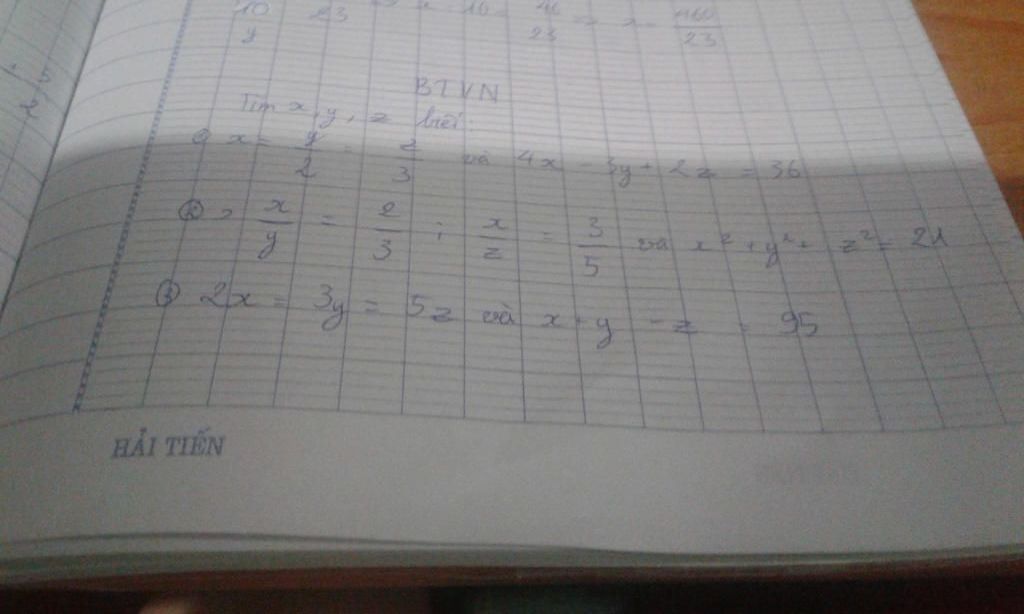 10/y 23 => x . 10 = 46/23 => x = 460/23
BTVN
Tìm x, y, z biết:
① x = y/2 = z/3 và 4x - 3y + 2z = 36
② x/y = 2/3 ; x/z = 3/5 và x² + y² + z² = 21
③ 2x = 3y = 5z và x + y - z = 95
HẢI TIẾN